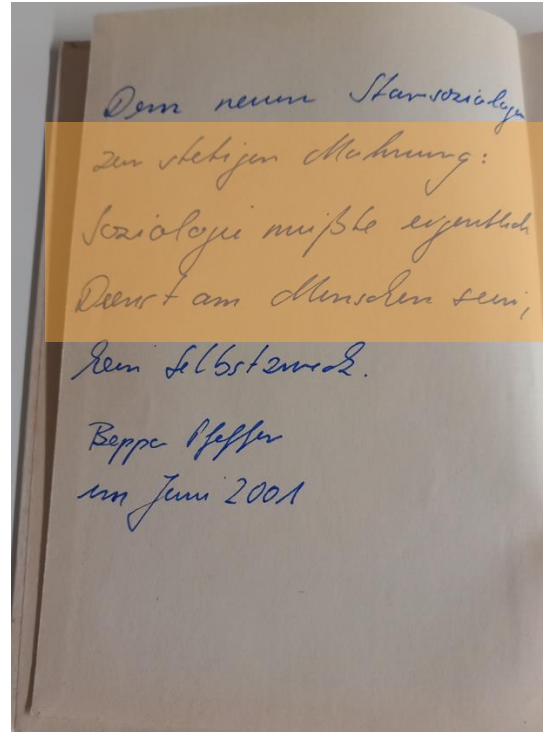 Dem neuen Starsoziologen
zur stetigen Mahnung:
Soziologie müßte eigentlich
Dienst am Menschen sein,
kein Selbstzweck.
Beppo Pfeffer
im Juni 2001